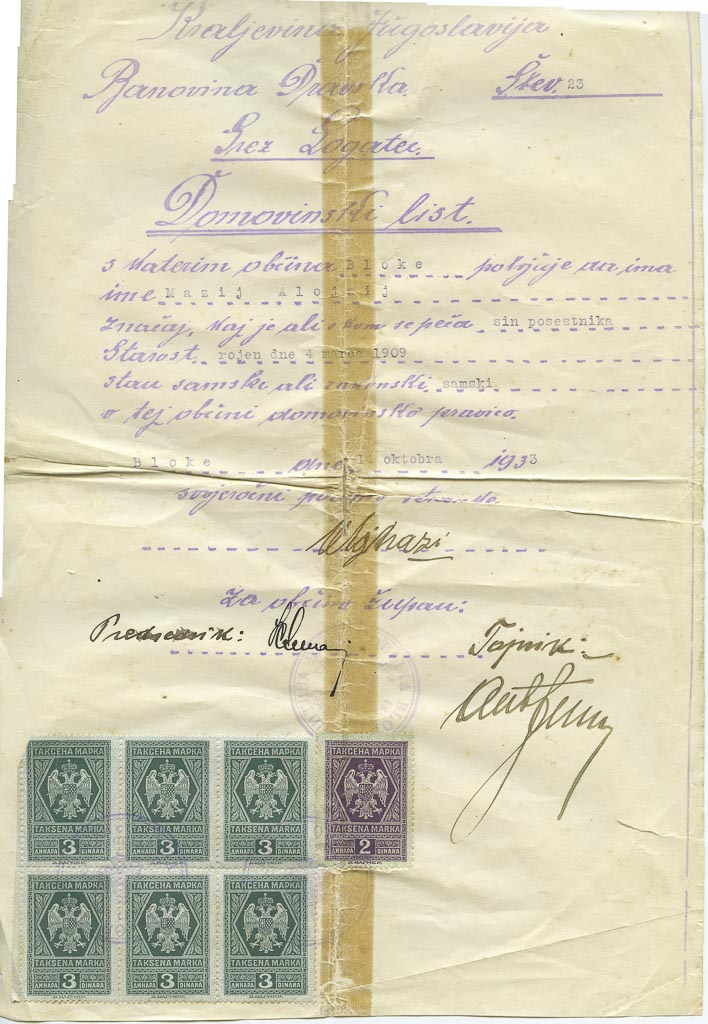 Kraljevina Jugoslavija
Banovina Dravska. Štev. 23
Srez Logatec.
Domovinski list.
s katerim občina Bloke potrjuje da ima
ime Mazij Alojzij
značaj, kaj je ali s kom se peča sin posestnika
Starost rojen dne 4 marca 1909
stan samski ali zakonski, samski
v tej občini domovinsko pravico.
Bloke dne 14 oktobra 1933
svojeročni podpis stranke
Za občino župan:
Predsednik:
Tajnik:
ТАКСЕНА МАРКА ТАКСЕНА МАРКА ТАКСЕНА МАРКА ТАКСЕНА МАРКА
TAKSENA MARKA TAKSENA MARKA TAKSENA MARKA TAKSENA MARKA
ДИНАРА 3 DINARA ДИНАРА 3 DINARA ДИНАРА 3 DINARA ДИНАРА 2 DINARA
ТАКСЕНА МАРКА ТАКСЕНА МАРКА ТАКСЕНА МАРКА
TAKSENA MARKA TAKSENA MARKA TAKSENA MARKA
ДИНАРА 3 DINARA ДИНАРА 3 DINARA ДИНАРА 3 DINARA